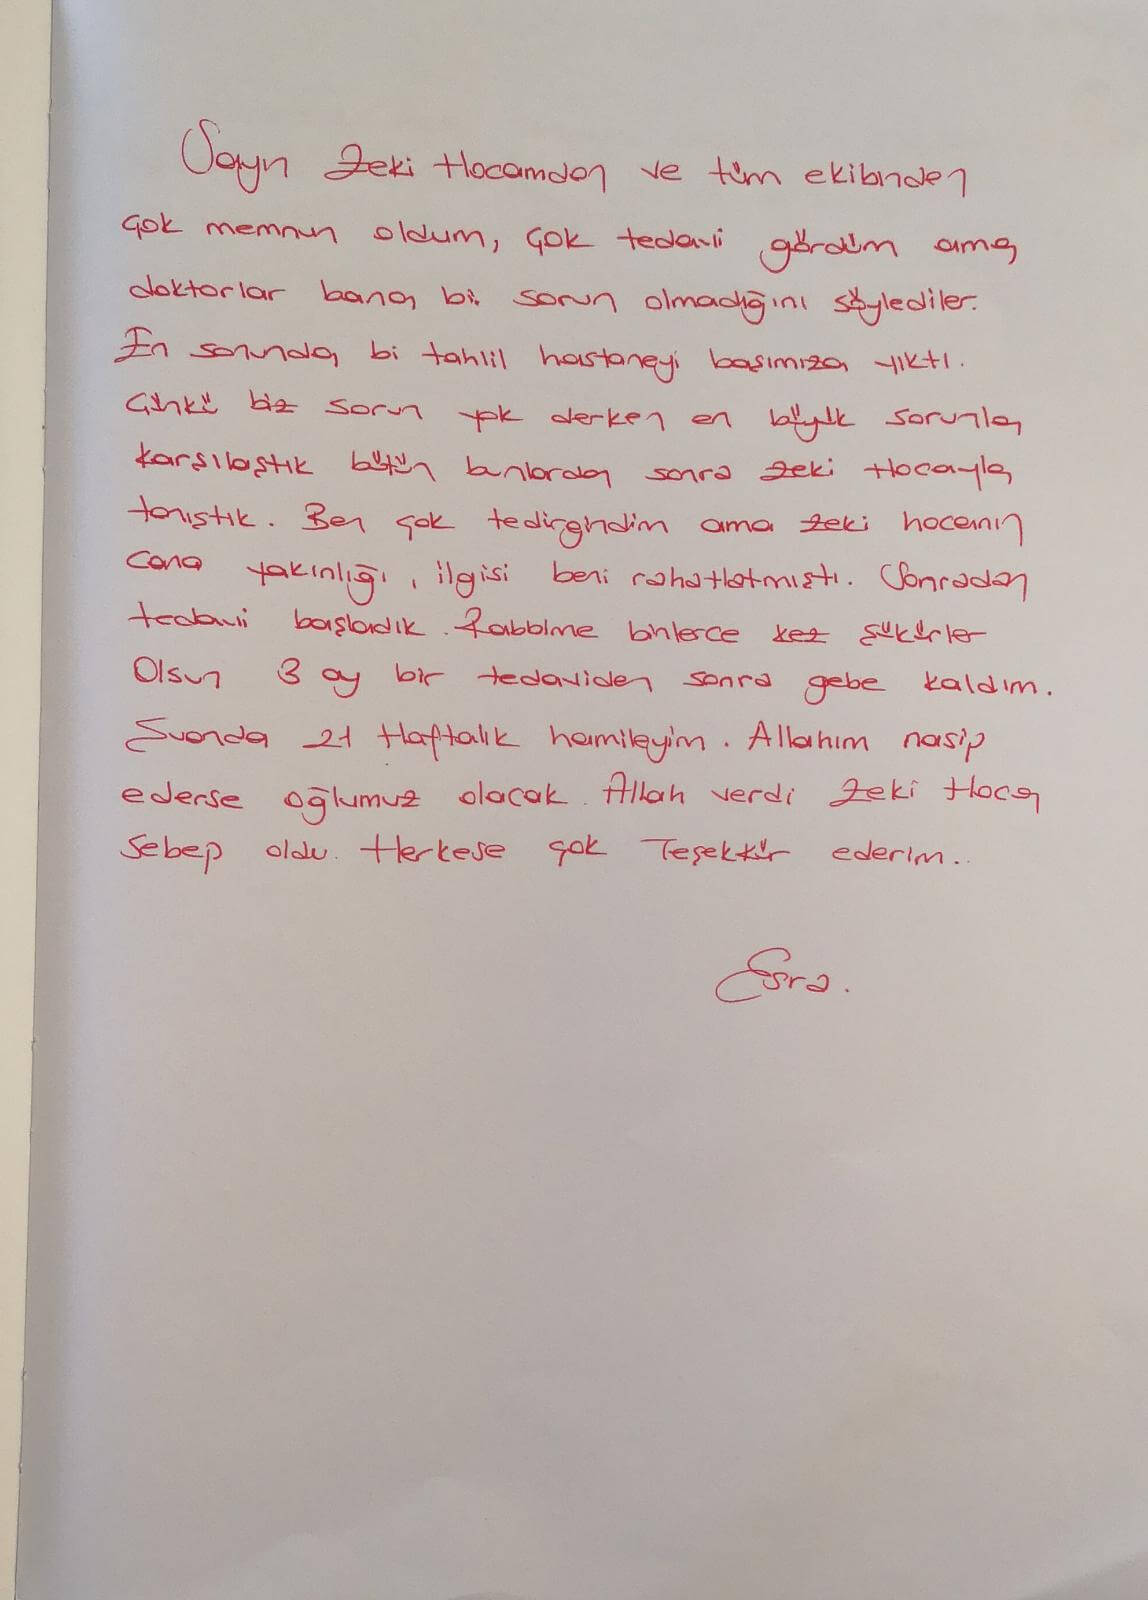 Sayın Zeki Hocamdan ve tüm ekibinden
çok memnun oldum, çok tedavi gördüm ama
doktorlar bana bir sorun olmadığını söylediler.
En sonunda bi tahlil hastaneyi başımıza yıktı.
Çünkü biz sorun yok derken en büyük sorunla
karşılaştık bütün bunlardan sonra Zeki Hocayla
tanıştık. Ben çok tedirgindim ama Zeki hocamın
cana yakınlığı, ilgisi beni rahatlatmıştı. Sonradan
tedavi başladık. Rabbime binlerce kez şükürler
Olsun 3 ay bir tedaviden sonra gebe kaldım.
Şuanda 21 Haftalık hamileyim. Allahım nasip
ederse oğlumuz olacak. Allah verdi Zeki Hoca
Sebep oldu. Herkese çok Teşekkür ederim..
Esra.